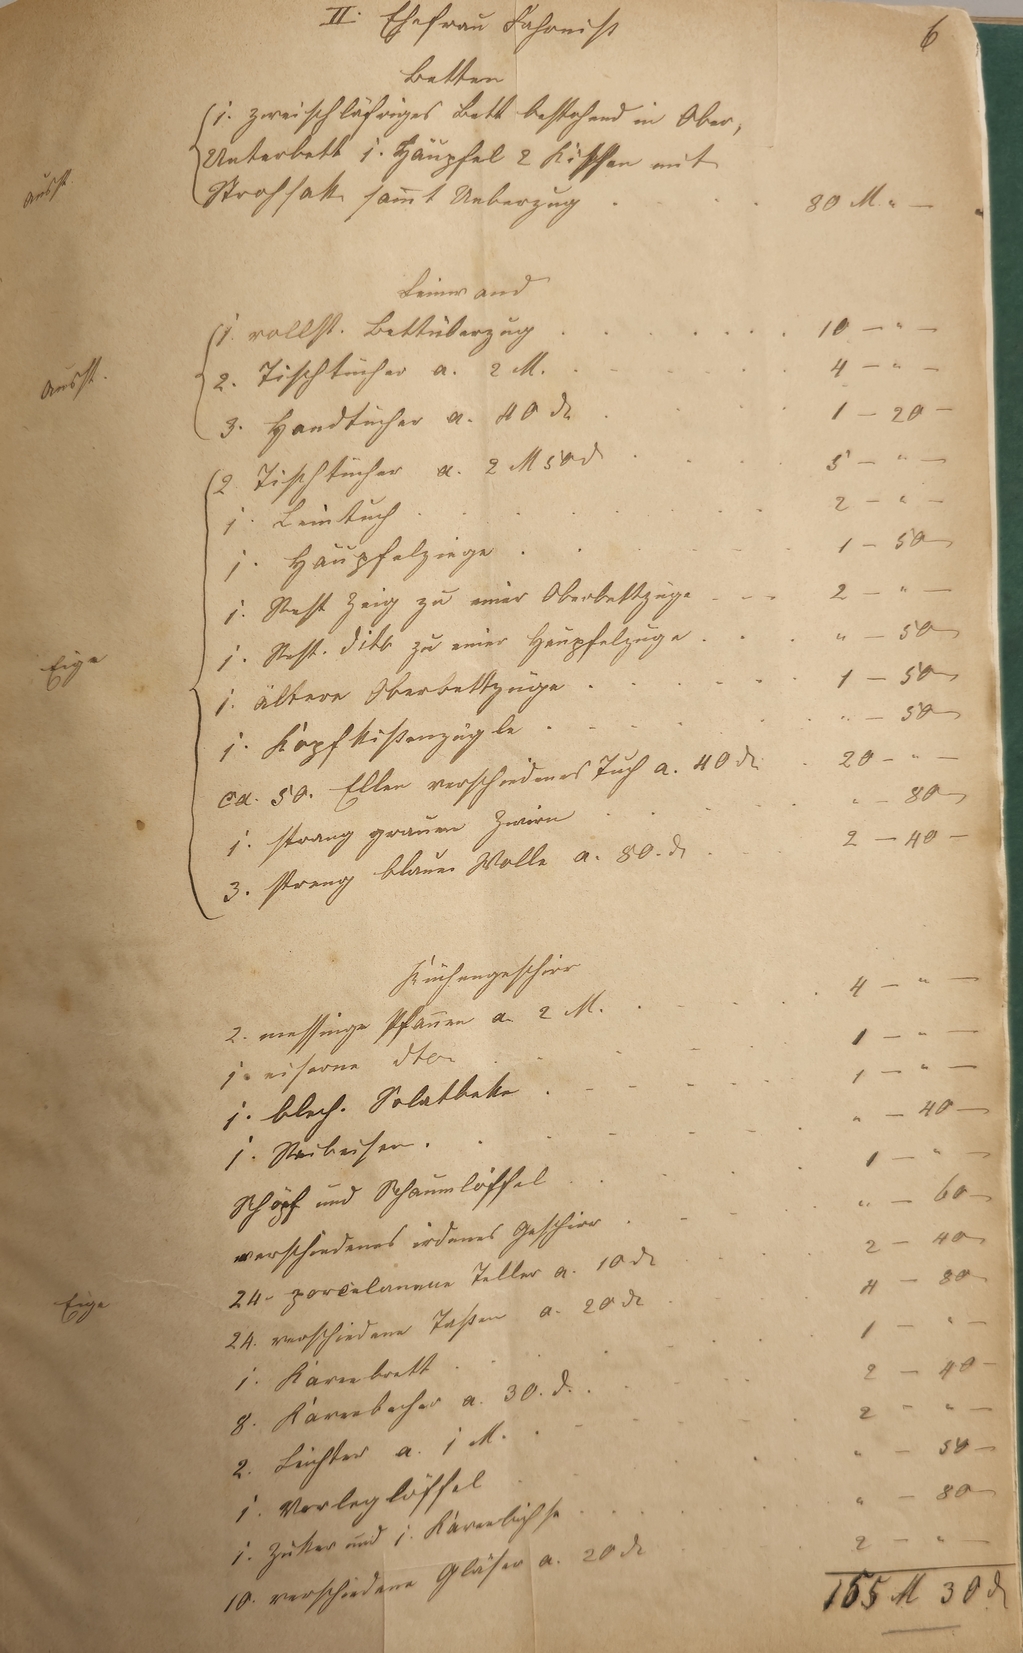 II. Ehefrau Fahrniß
6
Betten
1. zweischläfriges Bett bestehend in Ober,
Unterbett 1. Häupfel 2 Kißen mit
Ausst.
Strohsak samt Ueberzug . . . . 80 M " —
Leinwand
1. vollst. Bettüberzug . . . . 10 — " —
Ausst.
2. Tischtücher a. 2 M. . . . . 4 — " —
3. Handtücher a. 40 d . . . . 1 — 20 —
2 Tischtücher a. 2 M 50 d . . . . 5 — " —
1. Leintuch . . . . 2 — " —
1. Häupfelziege . . . . 1 — 50
1. Rest Zeig zu einer Oberbettzüge . . . 2 — " —
1. Rest. dito zu einer Häupfelzüge . . . " — 50
Eige
1. ältere Oberbettzüge . . . . 1 — 50
1. Kopfkißenzügle . . . . " — 50
ca. 50. Ellen verschiedenes Tuch a. 40 d . 20 — " —
1. strang grauen Zwirn . . . . " — 80
3. streng blaue Wolle a. 80. d . . . 2 — 40 —
Küchengeschirr
2. messinge Pfannen a. 2 M. . . . . 4 — " —
1. eiserne dto . . . . 1 — " —
1. blech. Salatbeke . . . . 1 — " —
1. Reibeisen . . . . " — 40 —
Schöpf und Schaumlöffel . . . . 1 — " —
verschiedenes irdenes Geschirr . . . . " — 60
24. porcelanene Teller a. 10 d . . . 2 — 40
Eige
24. verschiedene Taßen a. 20 d . . . 4 — 80
1. Kaveebrett . . . . 1 — " —
8. Kaveebecher a. 30. d. . . . . 2 — 40 —
2. Leuchter a. 1 M. . . . . 2 — " —
1. Vorleglöffel . . . . " — 50 —
1. Zuker und 1. Kaveebüchse . . . . " — 80
10. verschiedene Gläser a. 20 d . . . 2 — " —
155 M 30 d